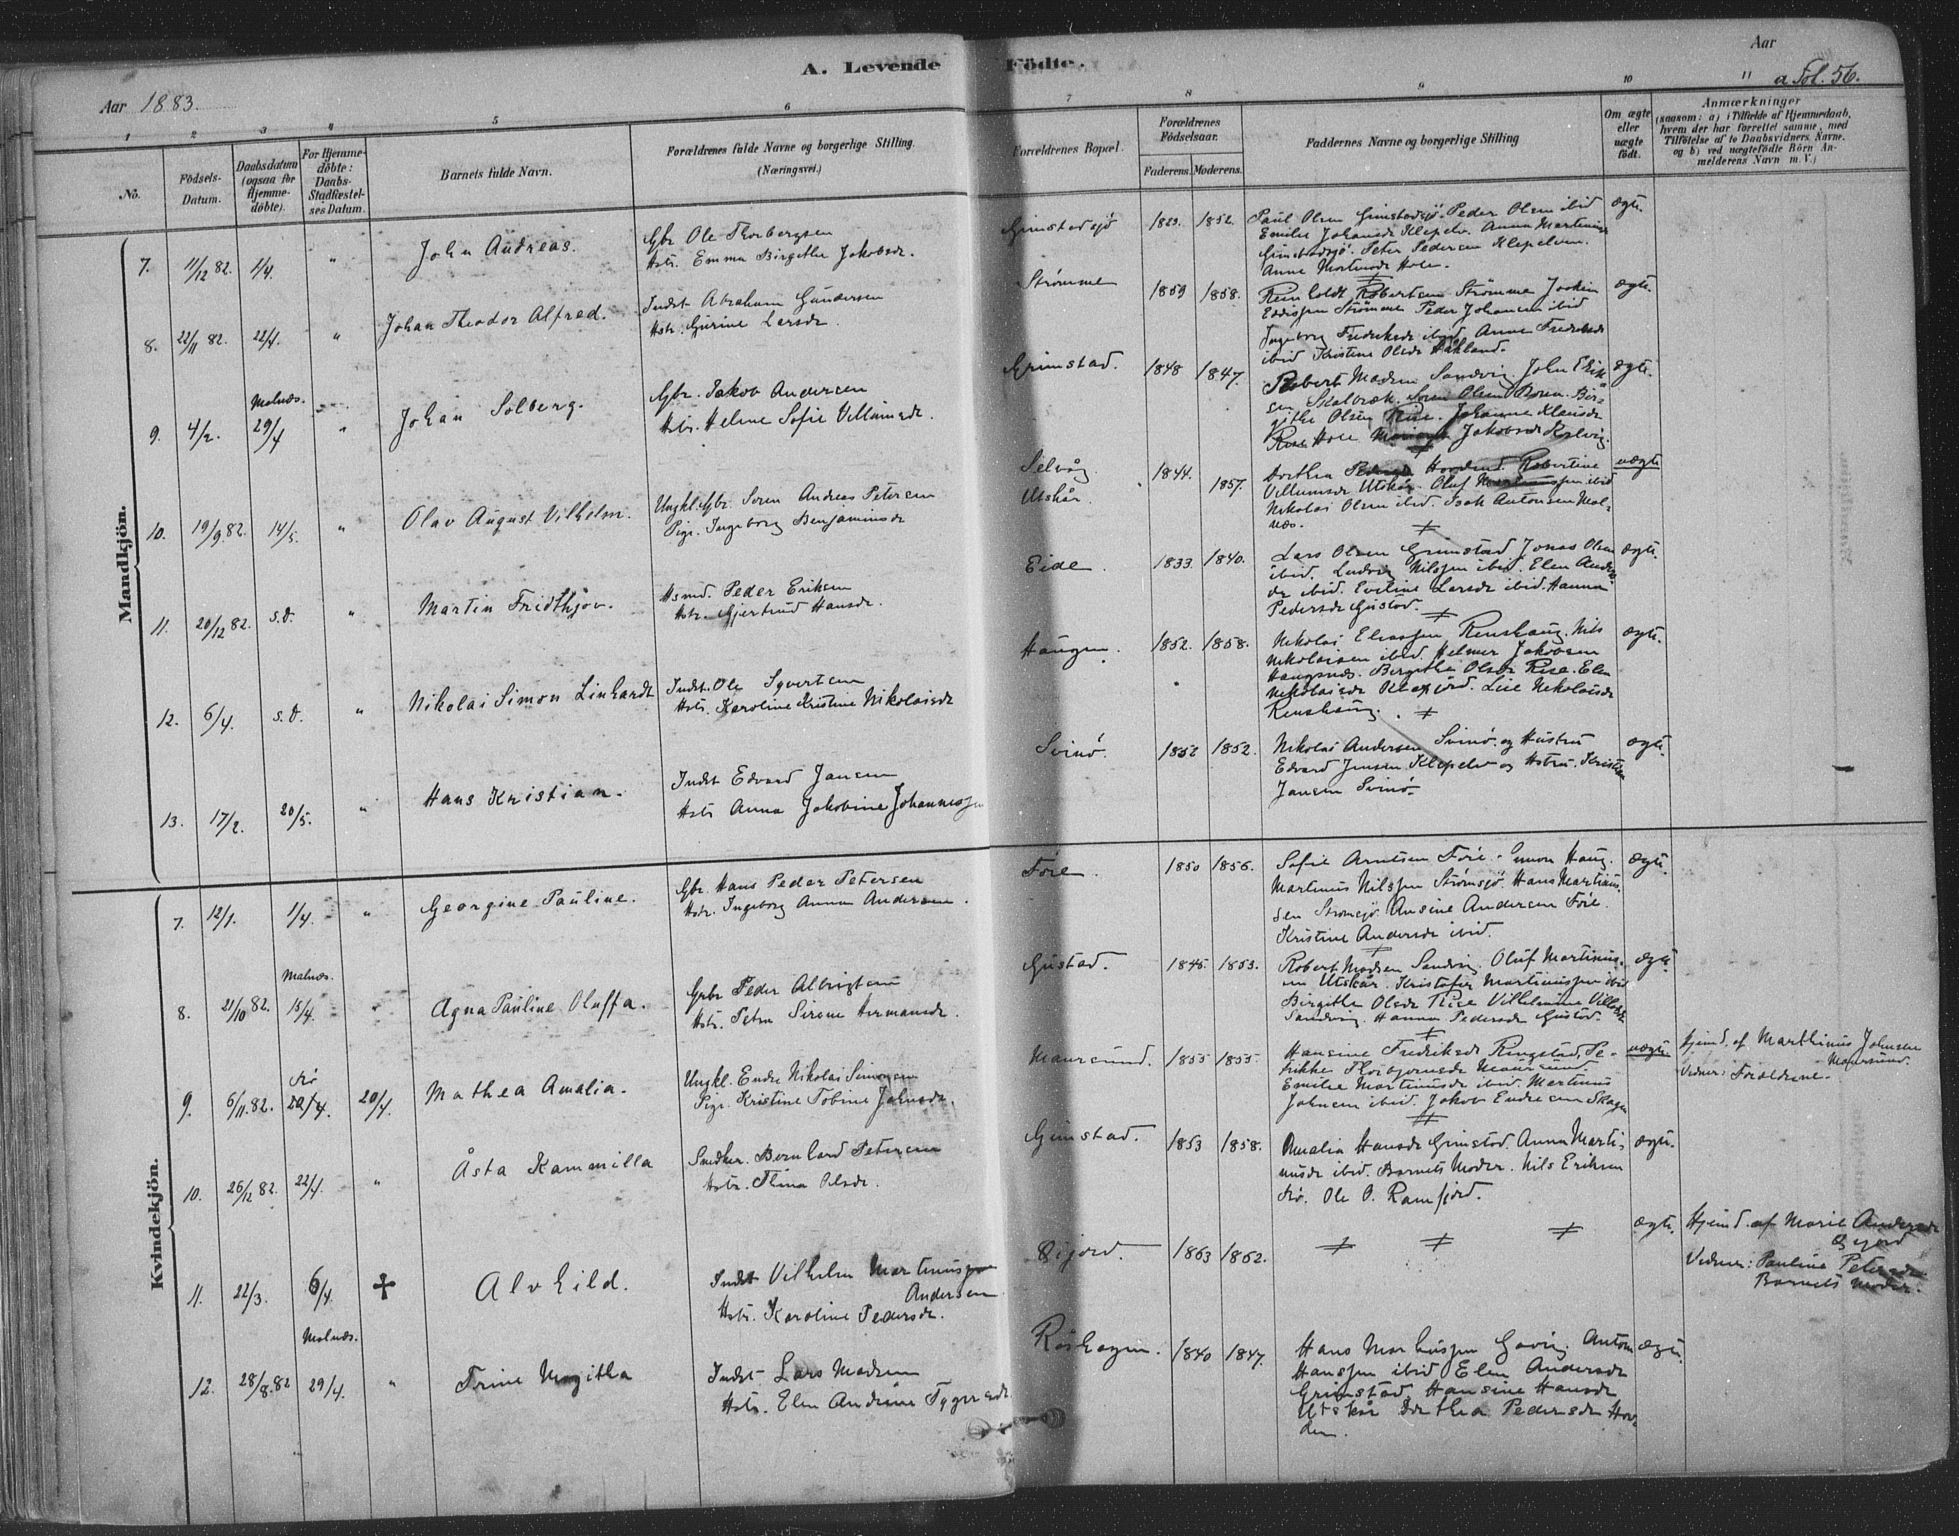 A. Levende Födte.
Aar
a Fol. 56.
Aar 1883.
1 2 3 4 5 6 7 8 9 10 11
No.
Födsels-Datum.
Daabsdatum (ogsaa for Hjemme-döbte).
For Hjemme-döbte: Daabs-Stadfæstel-ses Datum.
Barnets fulde Navn.
Forældrenes fulde Navne og borgerlige Stilling. (Næringsvei.)
Forældrenes Bopæl.
Forældrenes Födselsaar.
Faderens. Moderens.
Faddernes Navne og borgerlige Stilling
Om ægte eller uægte födt.
Anmærkninger
(saasom: a) i Tilfælde af Hjemmedaab, hvem der har forrettet samme, med Tilföielse af to Daabsvidners Navne. og b) ved uægtefödte Börn An-melderens Navn m. V.)
Mandkjön.
7. 11/12 82. 1/4. " Johan Andreas.
Gbr Ole Thorbergsen
Hstr. Emma Birgithe Jakobsdr.
Grimstadsjö 1823. 1852.
Paul Olsen Grimstadsjö. Peder Olsen ibid
Emilie Johansdr Klepelv. Anna Martinusd
Grimstadsjö. Peter Pedersen Klepelven.
Anne Mortensdr Holm.
ægte.
8. 22/11 82. 22/4. " Johan Theodor Alfred.
Indst Abraham Gundersen
Hstr. Gurine Larsdr.
Strömme 1859 1858.
Reinholdt Robertsen Strömme Joakim
Eddissen Strömme Peder Johansen ibid
Ingeborg Fredriksdr ibid Anne Fredriksdr
ibid Kristine Olsdr Hakland.
ægte.
9. 4/2. Malnæs. 29/4 " Johan Solberg.
Gbr. Jakob Andersen
Hstr. Helene Sofie Villumsdr.
Grimstad. 1848 1847.
Robert Madsen Sandvig. John Erik-
sen Skalbræk. Sören Olsen Roren. Bir-
githe Olsen Rise. Johanne Klausdr
Rise Hole Jakobsdr
ægte.
10. 19/9 82. 14/5. " Olav August Vilhelm.
Ungkl. Gbr. Sören Andreas Petersen
Pige. Ingeborg Benjaminsdr
Selvåg 1844.
Utskår. 1857.
Dorthea Pedersdr Hovden. Robertine
Villumsdr Utskår. Oluf Martinussen ibid
Nikolai Olsen ibid. Isak Antonsen Mal-
næs.
uægte
11. 20/12 82. s.d. " Martin Fridthjov.
Hsmd. Peder Eriksen
Hstr. Gjertrud Hansdr.
Eide. 1833 1840.
Lars Olsen Grimstad Jonas Olsen
ibid. Ludvig Nilssen ibid. Elen Anders-
dr ibid. Eveline Larsdr ibid. Hanna
Pedersdr Gustad.
ægte.
12. 6/4. s.d. " Nikolai Simon Linhardt
Indst. Ole Syvertsen
Hstr. Karoline Kristine Nikolaisdr
Haugen. 1852. 1858.
Nikolai Eliassen Renshaug. Nils
Nikolaisen ibid. Helmer Jakobsen
Haugsnes. Birgithe Olsdr Rise. Elen
Nikolaisdr Oxfjord. Lise Nikolaisdr
Renshaug.
ægte.
13. 17/2. 20/5. " Hans Kristian.
Indst Edvard Jansen
Hstr Anna Jakobine Johannessen
Svinö. 1852 1852.
Nikolai Andersen Svinö. og Hustru
Edvard Jensen Klepelv og Hstru. Kristen
Jansen Svinö.
ægte.
Kvindekjön.
7. 12/1. 1/4. " Georgine Pauline.
Gbr. Hans Peder Petersen
Hstr. Ingeborg Anna Andersen.
Före. 1850 1856.
Sofie Arntsen Före. Simon Haug.
Martinus Nilssen Strömsjö. Hans Martinus-
sen Strömsjö. Ansine Andersen Före.
Kristine Andersdr ibid.
ægte
8. 21/10 82. Malnæs. 15/4. " Agna Pauline Oluffa.
Gbr Peder Albrigtsen
Hstr. Petra Sirene Hermansdr.
Gustad. 1845 1853.
Robert Madsen Sandvig. Oluf Martinus-
sen Utskår. Kristofer Martinussen ibid
Birgithe Olsdr Rise Vilhelmine Villumsdr
Sandvig. Hanna Pedersdr Gustad.
ægte.
9. 6/11 82. 20/4. 20/4. Mathea Amalia.
Ungkl. Endre Nikolai Simonsen
Pige. Kristine Tobine Johnsdr.
Maursund. 1855 1855.
Hansine Fredriksdr Ringstad. Pe-
trikke Thorbjörnsdr Maursund.
Emilie Martinusdr ibid. Martinus
Johnsen ibid. Jakob Endresen Skagen
uægte
Hjemd. af Marthinus Johnsen
Maursund.
Vidner: Forældrene.
10. 26/12 82. 22/4. " Åsta Kammilla
Snedker. Bernhard Petersen
Hstr. Thina Olsdr.
Grimstad. 1853 1858.
Amalia Hansdr Grimstad. Anna Marti-
nusdr ibid. Barnets Moder. Nils Eriksen
Frö. Ole O. Ramfjord.
ægte.
11. 22/3. 6/4. Alvhild.
Indst Vilhelm Martinussen
Andersen
Hstr. Karoline Pedersdr.
1863 1862.
ægte.
Hjemd. af Marie Andersdr
Vidner: Pauline Petersdr
Barnets Moder.
12. 28/8 82 Malnæs. 29/4. " Trine Magitha
Indst Lars Madsen
Hstr. Elen Andrine
Röshagen. 1840 1847.
Hans Markussen Gavig. Anton
Hanssen ibid Elen Andersdr
Grimstad. Hansine Hansdr
Utskår Dorthea Pedersdr Hov-
den.
ægte.